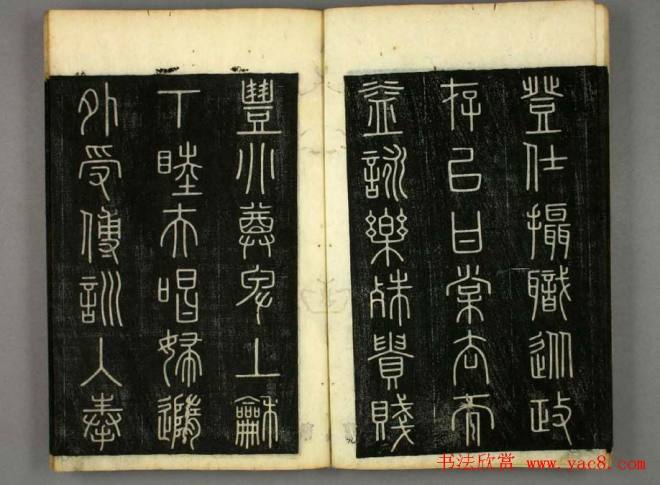 登仕攝職從政
存以甘棠去而
益詠樂殊貴賤
豊𠔁尊卑上龢
下睦夫唱婦隨
外受傅訓入奉
书法欣赏 www.yac8.com